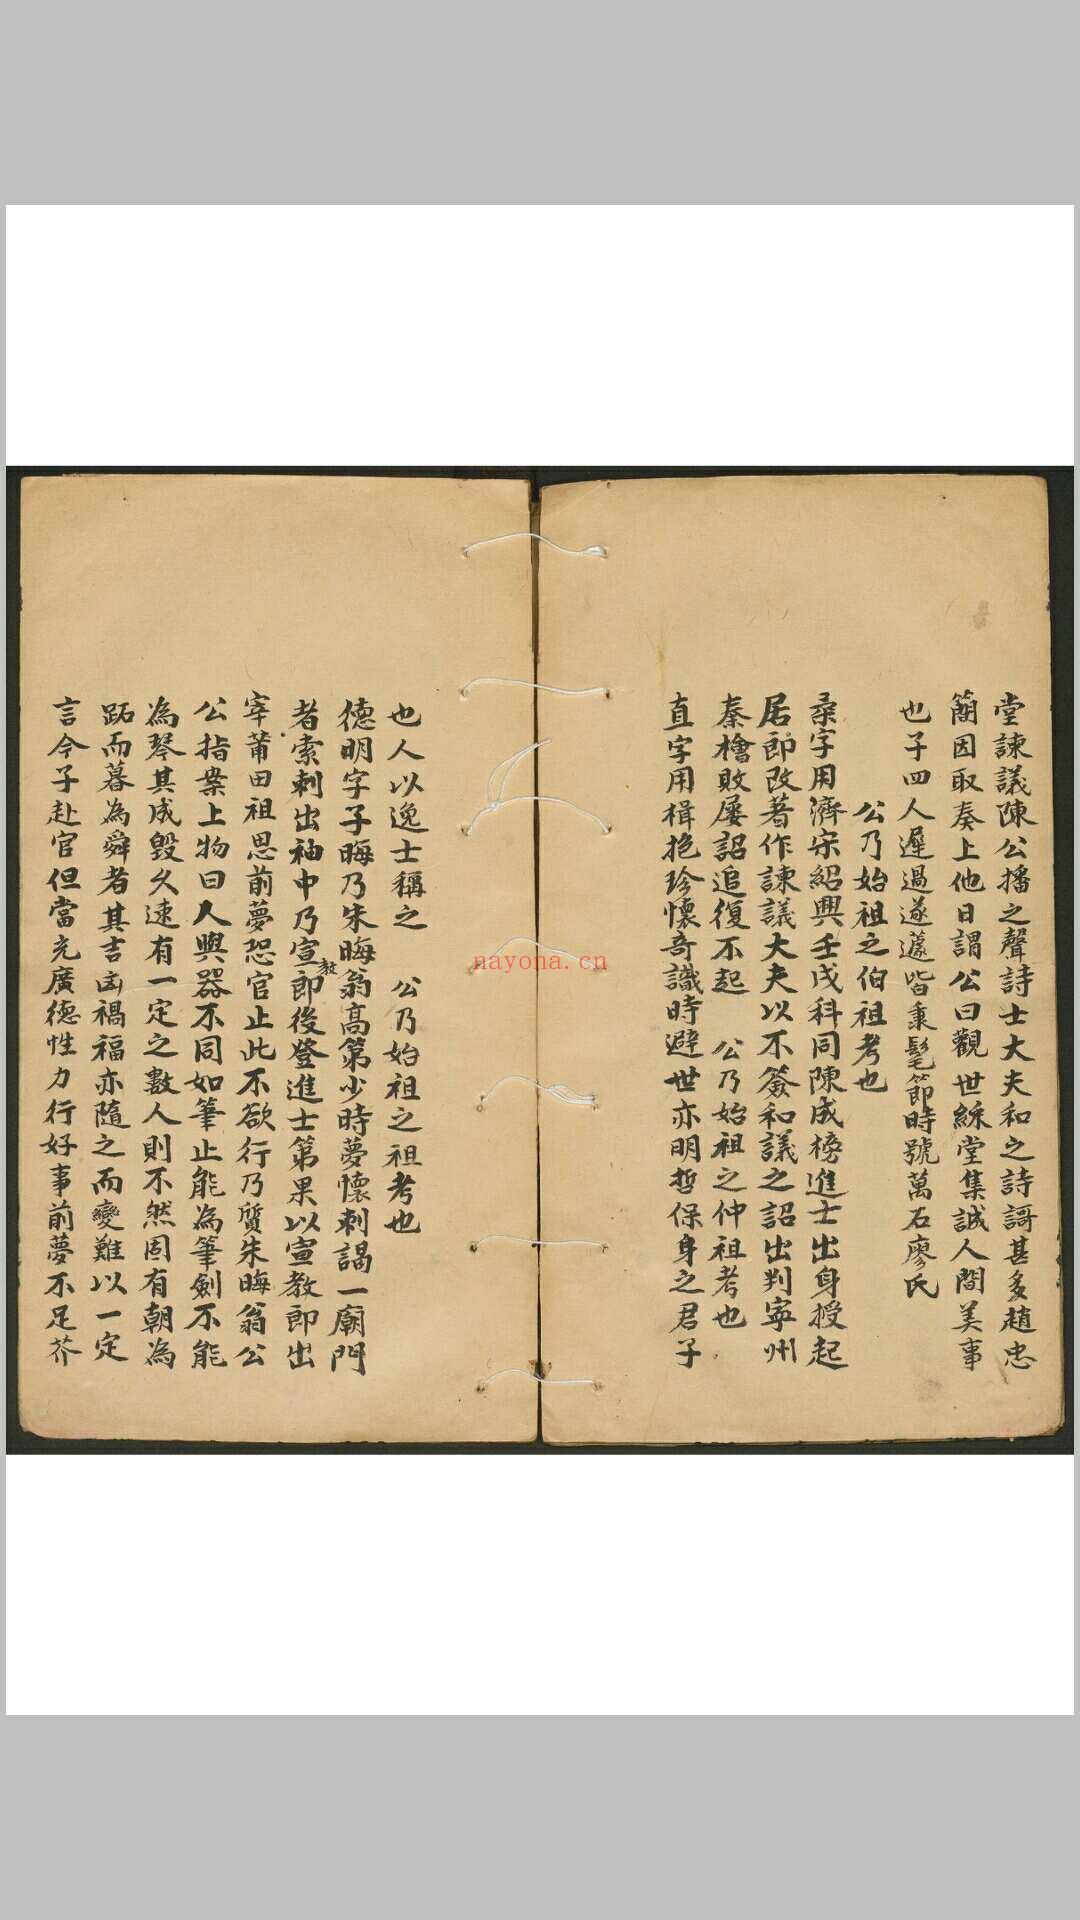 堂諫議陳公播之聲詩士大夫和之詩謌甚多趙忠
簡因取奏上他日謂公曰觀世綵堂集誠人間美事
也子四人遲過遂蘧皆秉髦節時號萬石廖氏
公乃始祖之伯祖考也
桑字用濟宋紹興壬戌科同陳成榜進士出身授起
居郎改著作諫議大夫以不簽和議之詔出判寧州
秦檜敗屢詔追復不起 公乃始祖之仲祖考也
直字用楫抱珍懷奇識時避世亦明哲保身之君子
也人以逸士稱之 公乃始祖之祖考也
德明字子晦乃朱晦翁高第少時夢懷刺謁一廟門
者索刺出袖中乃宣教郎後登進士第果以宣教郎出
宰莆田祖思前夢恐官止此不欲行乃質朱晦翁公
公指案上物曰人與器不同如筆止能為筆劍不能
為琴其成毀久速有一定之數人則不然固有朝為
跖而暮為舜者其吉凶禍福亦隨之而變難以一定
言今子赴官但當充廣德性力行好事前夢不足芥
nayona.cn